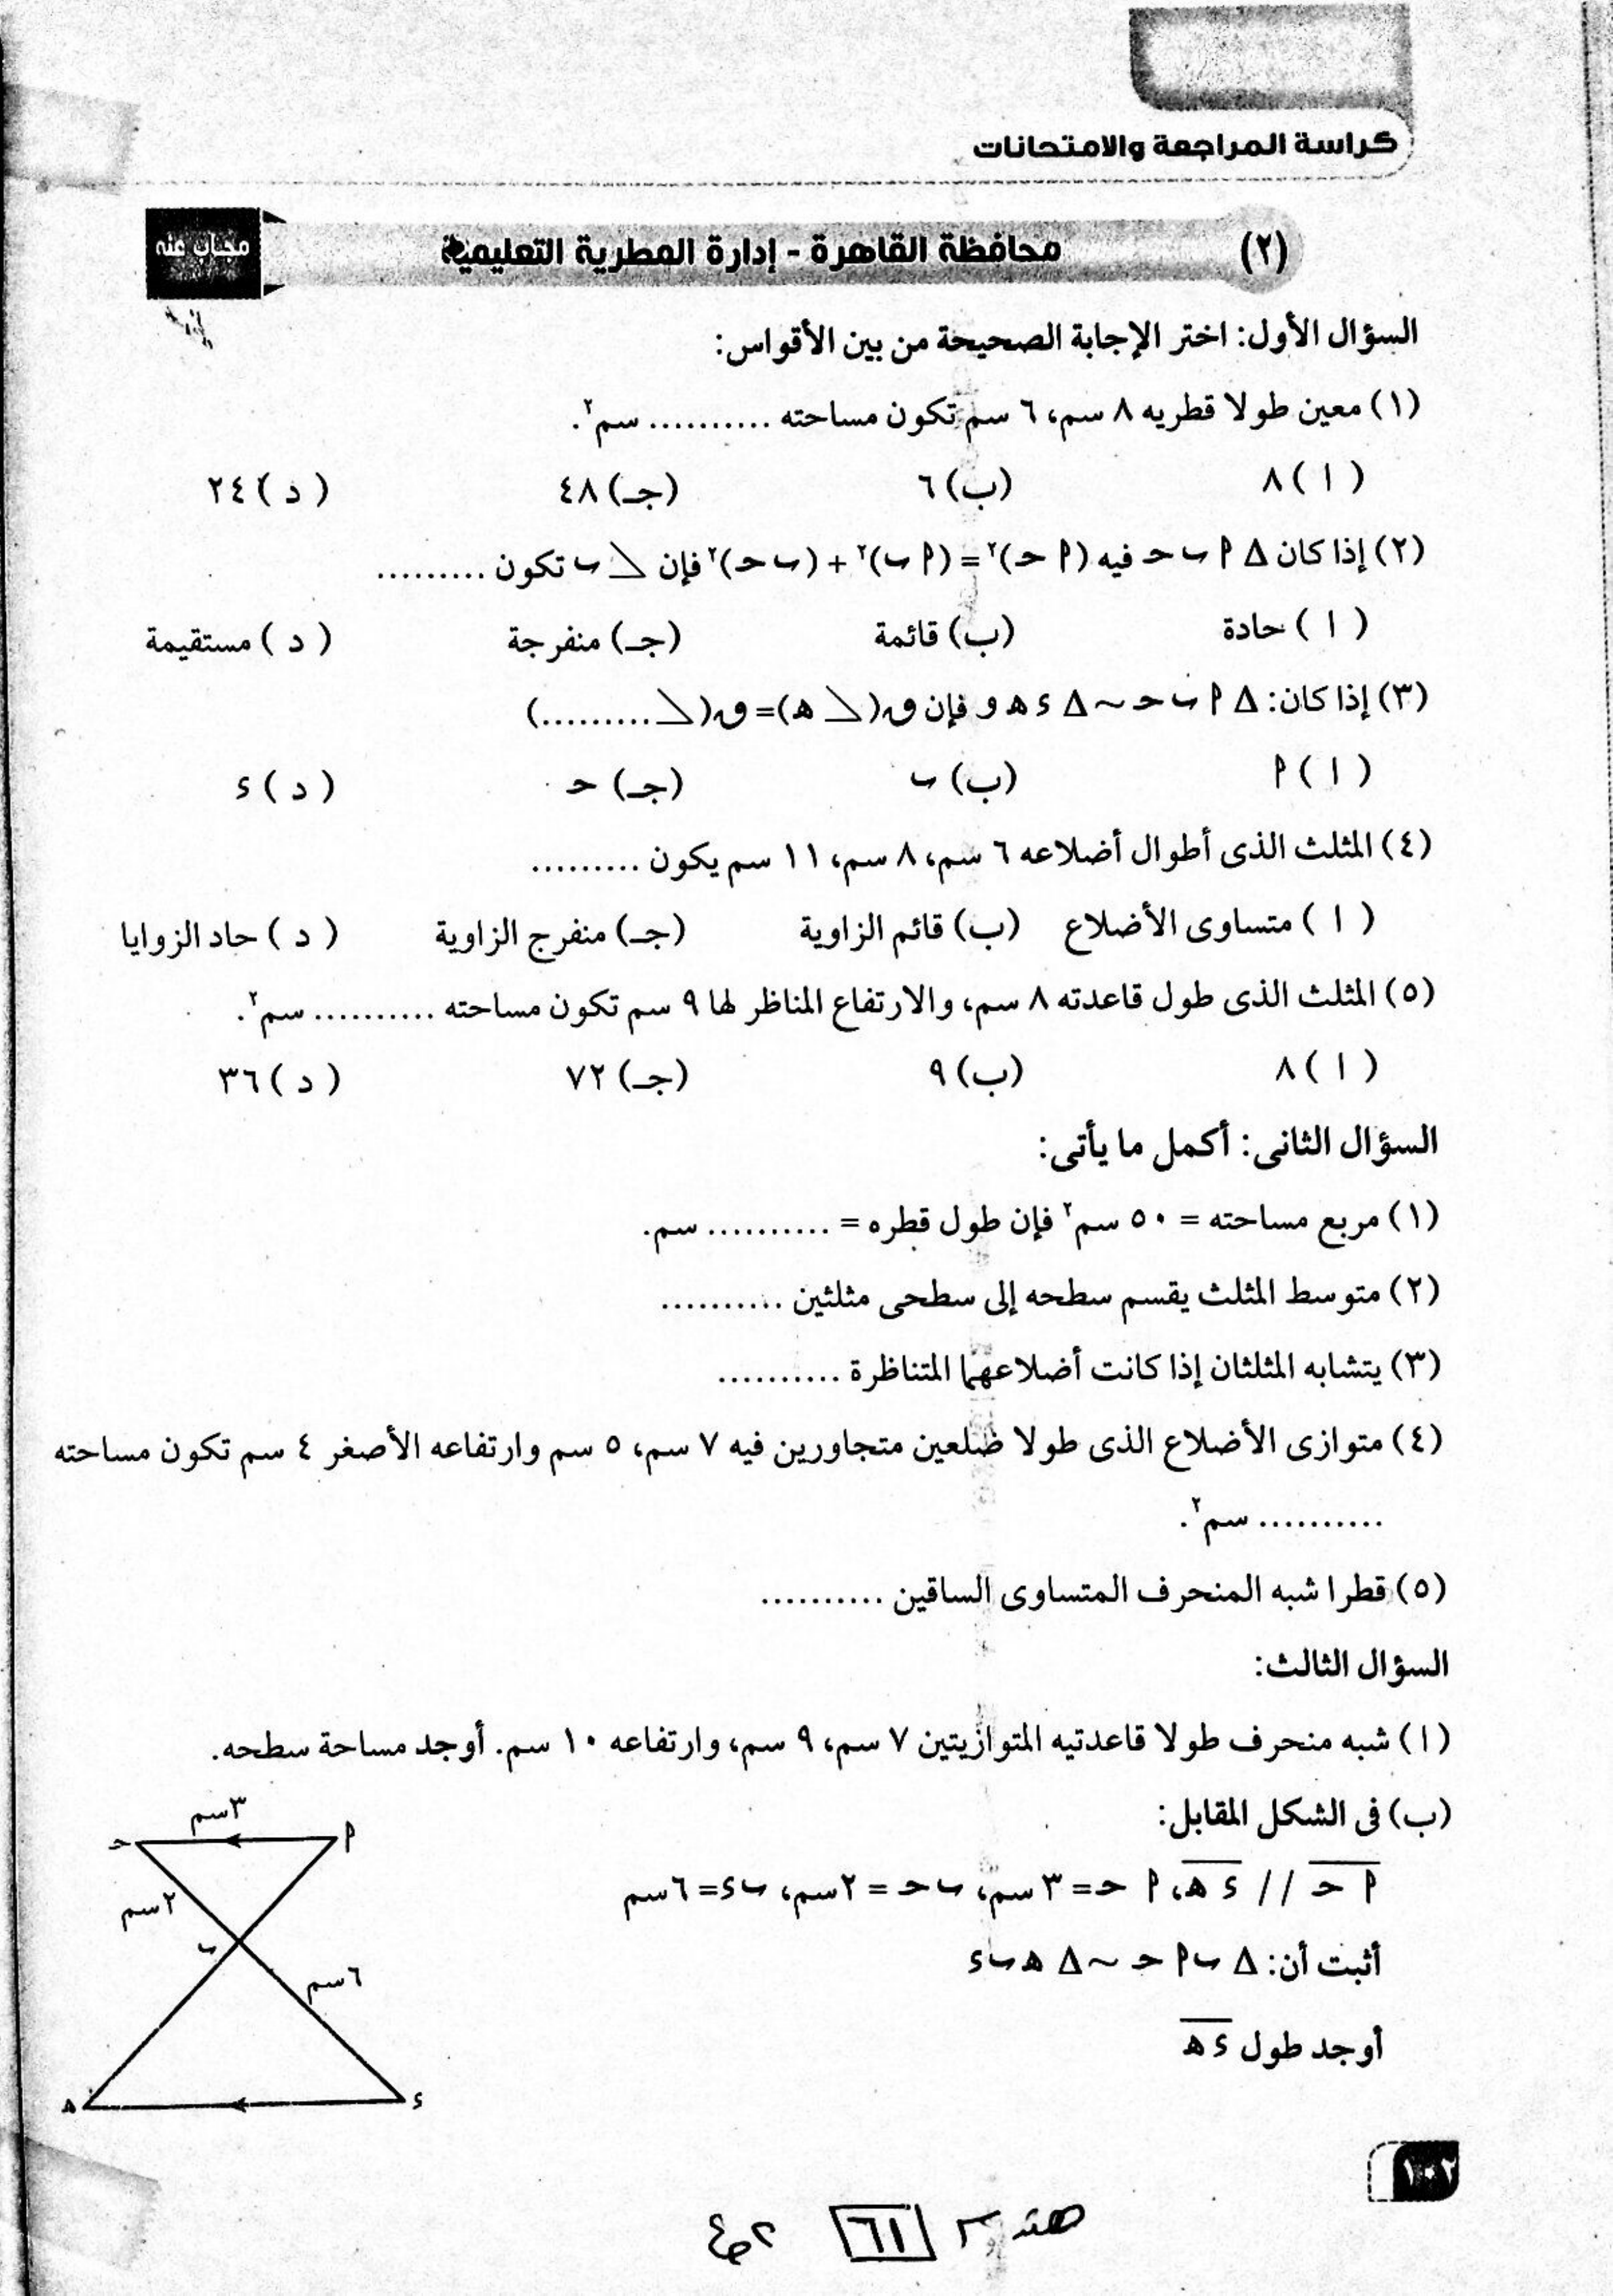 كراسة المراجعة والامتحانات
(٢) محافظة القاهرة - إدارة المطرية التعليمية
مجاب عنه
السؤال الأول: اختر الإجابة الصحيحة من بين الأقواس:
(١) معين طولا قطريه ٨ سم، ٦ سم تكون مساحته .......... سم٢.
( ا ) ٨ (ب) ٦ (جـ) ٤٨ ( د ) ٢٤
(٢) إذا كان Δ ٢ ب حـ فيه (٢ حـ)٢ = (٢ ب)٢ + (ب حـ)٢ فإن ∠ ب تكون .........
( ا ) حادة (ب) قائمة (جـ) منفرجة ( د ) مستقيمة
(٣) إذا كان: Δ ٢ ب حـ ~ Δ ء هـ و فإن ق(∠ هـ) = ق(∠ .........)
( ا ) ٢ (ب) ب (جـ) حـ ( د ) ء
(٤) المثلث الذى أطوال أضلاعه ٦ سم، ٨ سم، ١١ سم يكون .........
( ا ) متساوى الأضلاع (ب) قائم الزاوية (جـ) منفرج الزاوية ( د ) حاد الزوايا
(٥) المثلث الذى طول قاعدته ٨ سم، والارتفاع المناظر لها ٩ سم تكون مساحته .......... سم٢.
( ا ) ٨ (ب) ٩ (جـ) ٧٢ ( د ) ٣٦
السؤال الثانى: أكمل ما يأتى:
(١) مربع مساحته = ٥٠ سم٢ فإن طول قطره = .......... سم.
(٢) متوسط المثلث يقسم سطحه إلى سطحى مثلثين ..........
(٣) يتشابه المثلثان إذا كانت أضلاعهما المتناظرة ..........
(٤) متوازى الأضلاع الذى طولا ضلعين متجاورين فيه ٧ سم، ٥ سم وارتفاعه الأصغر ٤ سم تكون مساحته
.......... سم٢.
(٥) قطرا شبه المنحرف المتساوى الساقين ..........
السؤال الثالث:
(ا) شبه منحرف طولا قاعدتيه المتوازيتين ٧ سم، ٩ سم، وارتفاعه ١٠ سم. أوجد مساحة سطحه.
(ب) فى الشكل المقابل:
٢ حـ // ء هـ، ٢ حـ = ٣ سم، ب حـ = ٢ سم، ب ء = ٦ سم
أثبت أن: Δ ب ٢ حـ ~ Δ هـ ب ء
أوجد طول ء هـ
٣سم
٢
حـ
٢سم
ب
٦سم
هـ
ء
١٠٢
٦١